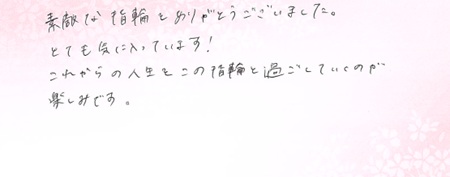 素敵な指輪をありがとうございました。
とても気に入っています!
これからの人生をこの指輪と過ごしていくのが
楽しみです。